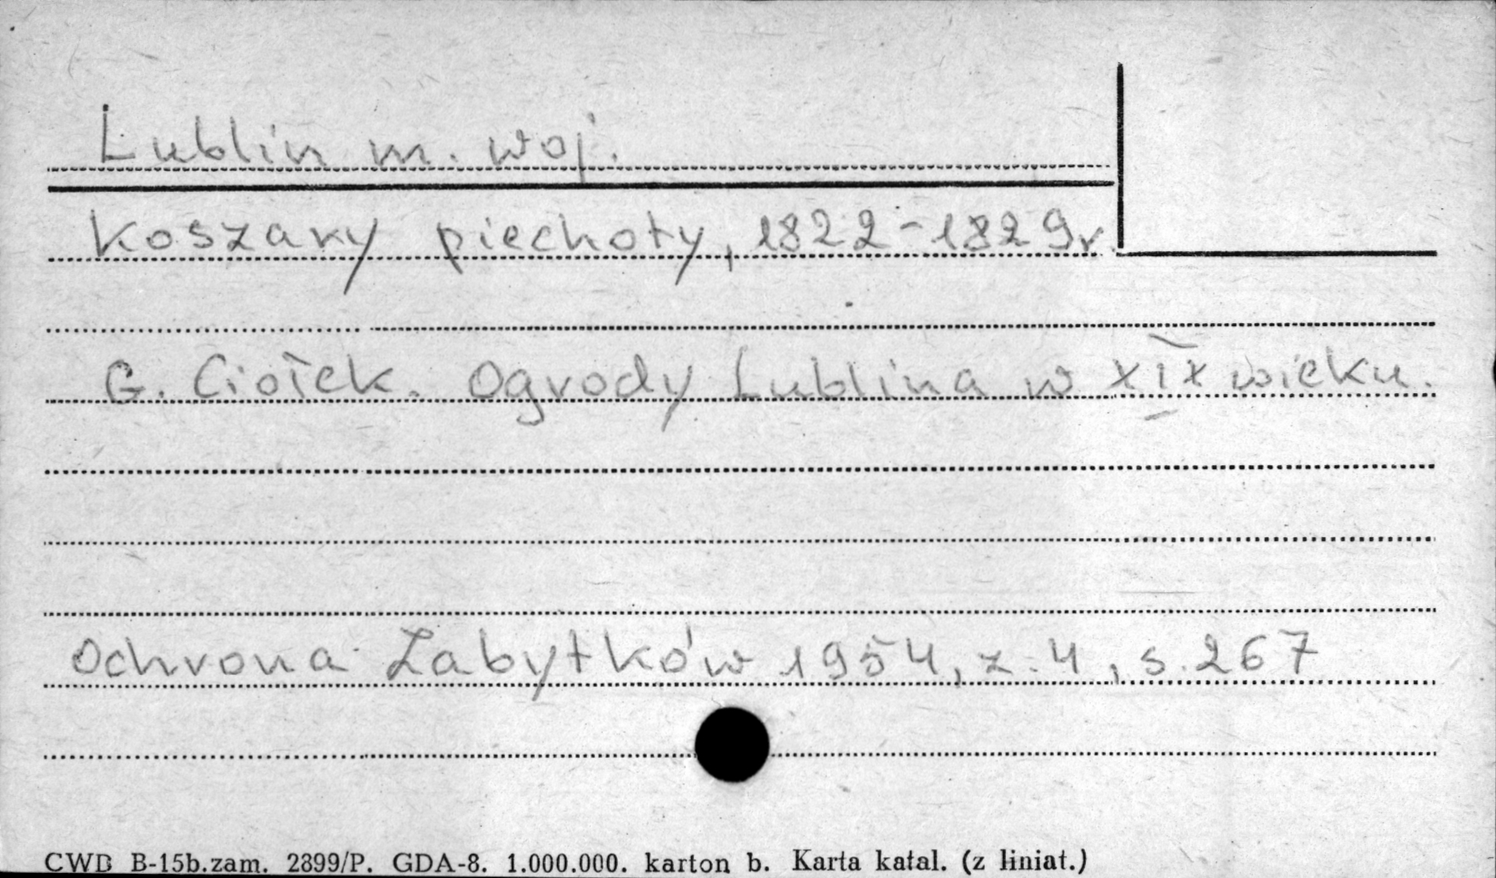 Lublin m. woj.
Koszary piechoty, 1822-1829r.
G. Ciołek. Ogrody Lublina w XIX wieku.
Ochrona Zabytków 1954, z. 4, s. 267
CWD B-15b.zam. 2899/P. GDA-8. 1.000.000. karton b. Karta katal. (z liniat.)